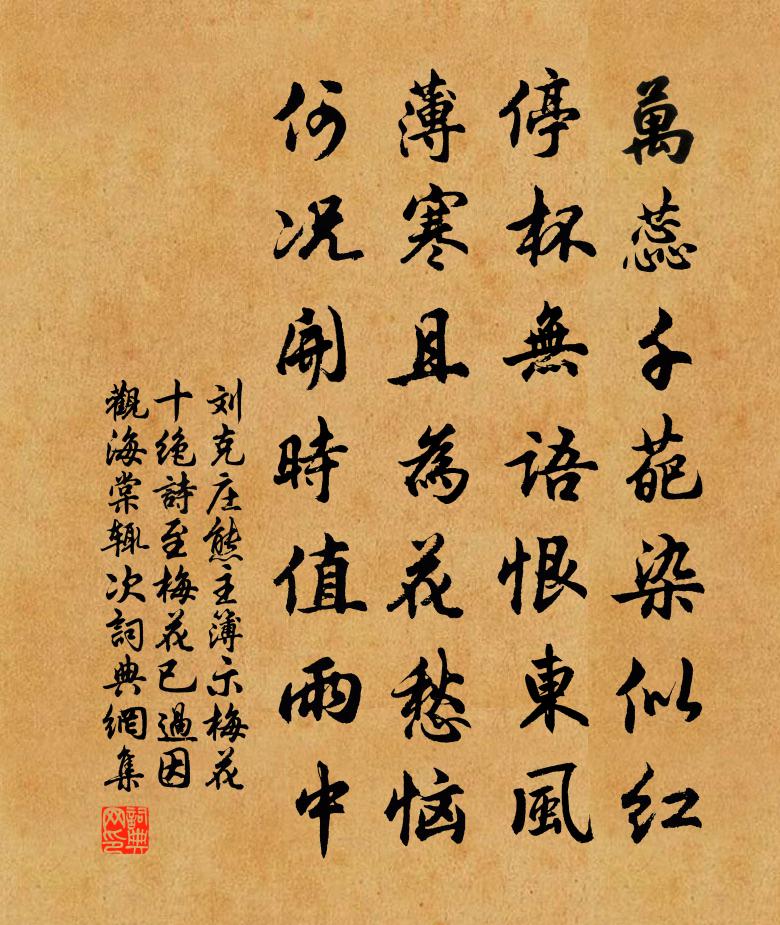 萬蕊千葩染似红
停杯無語恨東風
薄寒且為花愁恼
何况開時值雨中
刘克庄熊主簿示梅花
十绝詩至梅花已過因
觀海棠辄次詞典網集
詞典网印